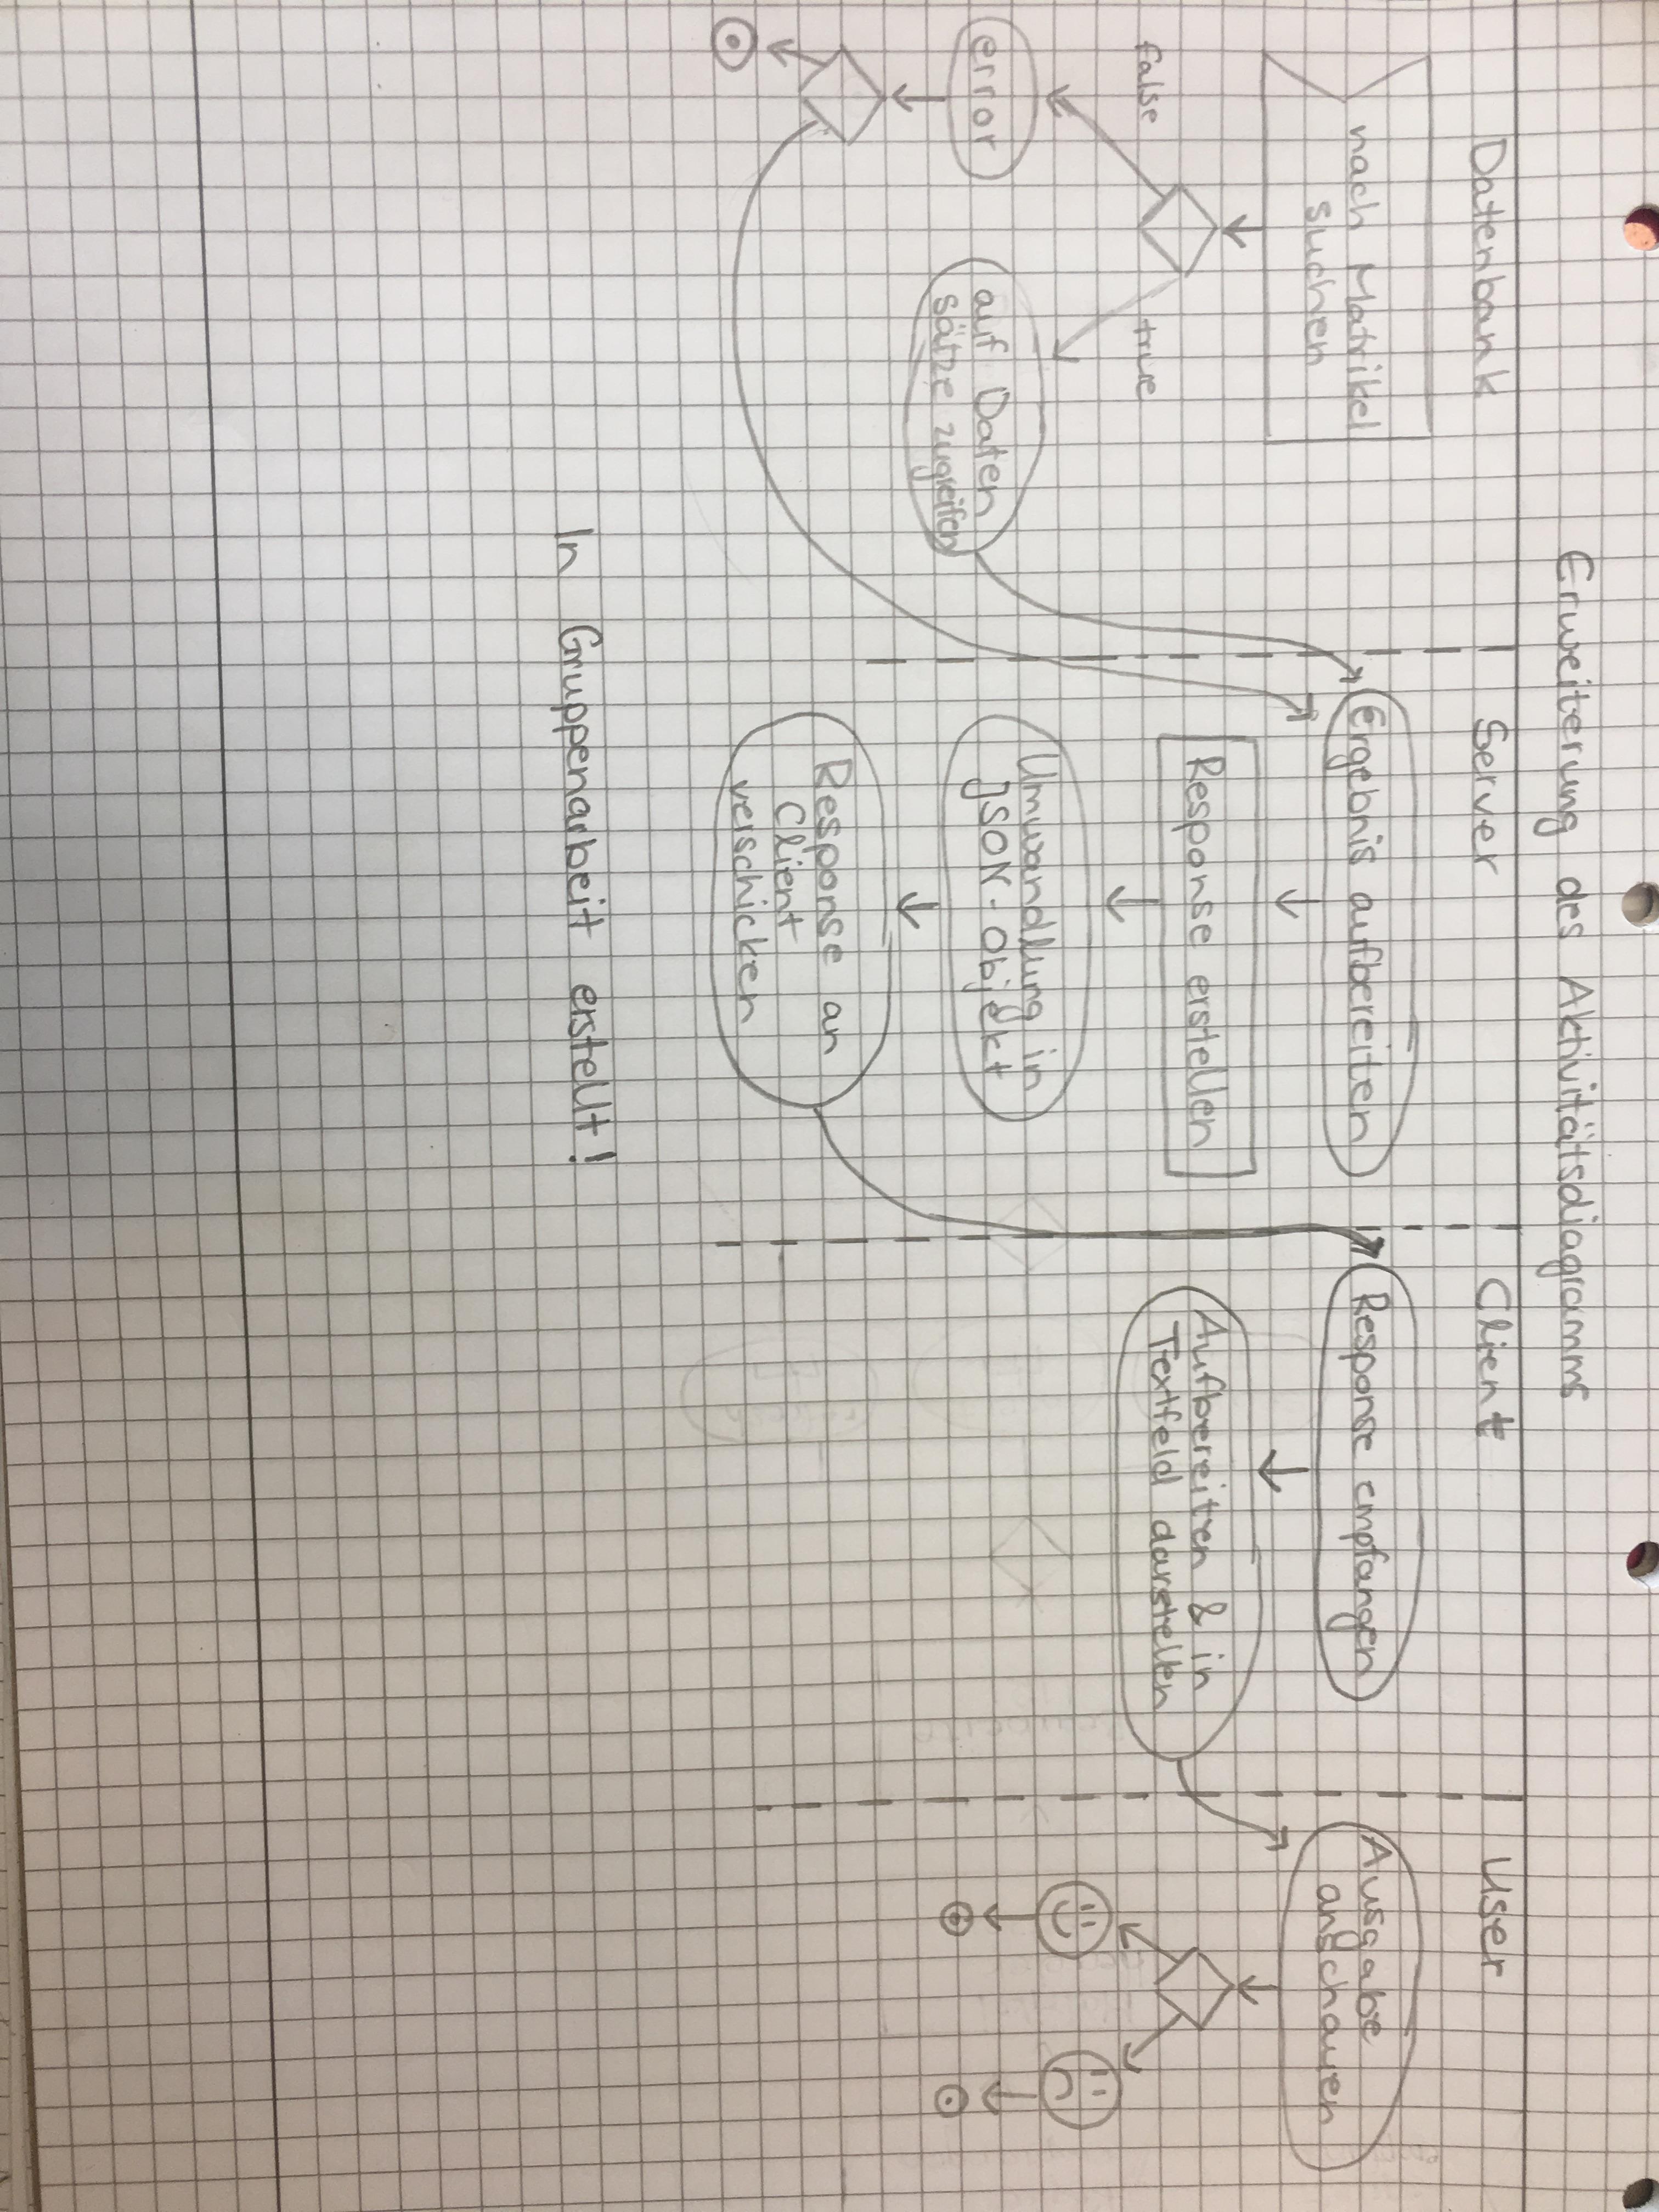 Erweiterung des Aktivitätsdiagramms
Datenbank
nach Matrikel
suchen
false
true
error
auf Daten
sätze zugreifen
Server
Ergebnis aufbereiten
Response erstellen
Umwandlung in
JSON-Objekt
Response an
Client
verschicken
Client
Response empfangen
Aufbereiten & in
Textfeld darstellen
User
Ausgabe
anschauen
In Gruppenarbeit erstellt!